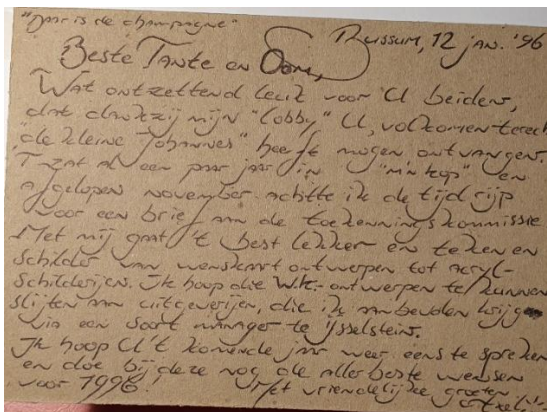 "Daar is de champagne"
Bussum, 12 jan. '96
Beste Tante en Oom,
Wat ontzettend leuk voor U beiden,
dat dankzij mijn "lobby" U, volkomen terecht
"de kleine Johannes" heeft mogen ontvangen.
't zat al een paar jaar in "m'n kop" en
afgelopen november achtte ik de tijd rijp
voor een brief aan de toekenningskommissie
Met mij gaat 't best lekker en teken en
schilder van wenskaart ontwerpen tot acryl-
schilderijen. Ik hoop die W.K.-ontwerpen te kunnen
slijten aan uitgeverijen, die ik aanbevolen krijg
via een soort manager te IJsselstein.
Ik hoop U 't komende jaar weer eens te spreken
en doe bij deze nog de allerbeste wensen
voor 1996!
Met vriendelijke groeten,